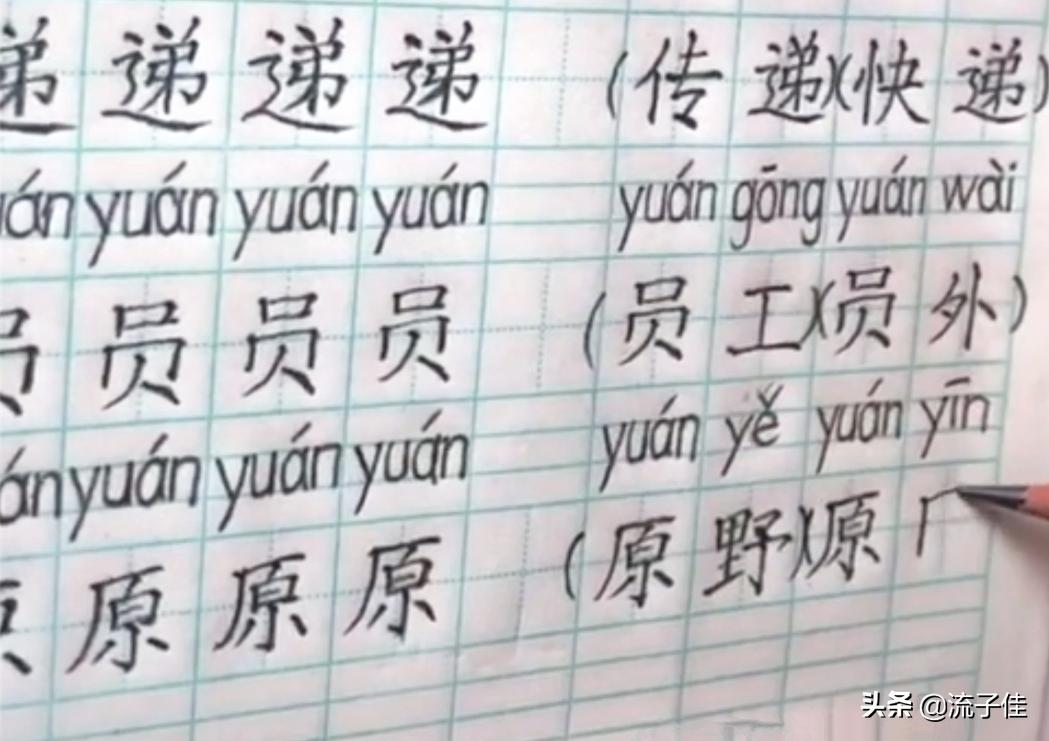 递 递 递 递 (传 递)(快 递)
yuán yuán yuán yuán gōng yuán wài
员 员 员 员 (员 工)(员 外)
yuán yuán yuán yuán yě yuán yīn
原 原 原 (原 野)(原
头条 @流子佳